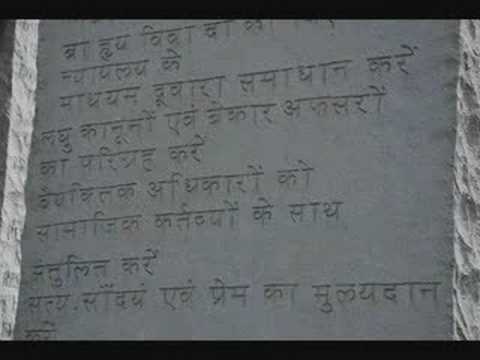 बाह्य विवादों को
न्यायलय के
माधयम द्वारा समाधान करें
लघु कानूनों एवं बेकार अफसरों
का परिग्रह करें
वैयक्तिक अधिकारों को
सामाजिक कर्तव्यों के साथ
संतुलित करें
सत्य.सौंदर्य एवं प्रेम का मुल्यदान
करें